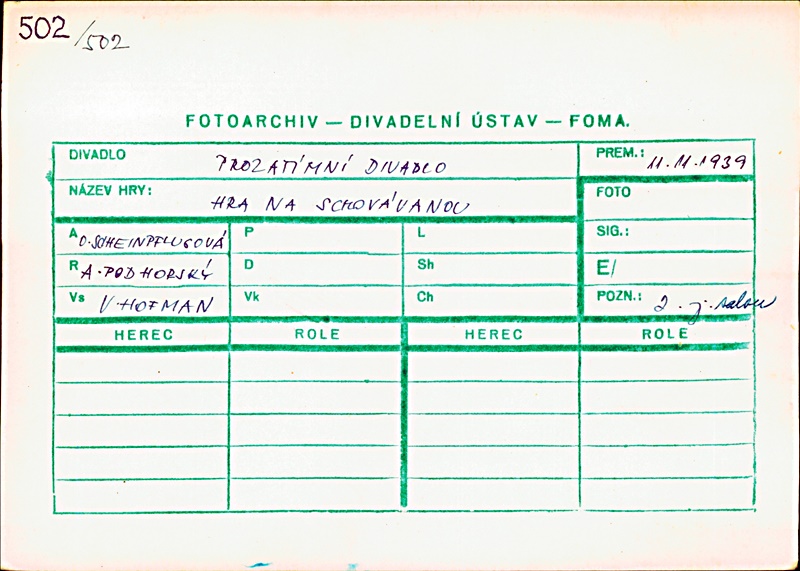 502 /502
FOTOARCHIV — DIVADELNÍ ÚSTAV — FOMA.
DIVADLO PROZATÍMNÍ DIVADLO PREM.: 11.11.1939
NÁZEV HRY: HRA NA SCHOVÁVANOU FOTO
A O.SCHEINPFLUGOVÁ P L SIG.:
R A.PODHORSKÝ D Sh E/
Vs V HOFMAN Vk Ch POZN.: 2. j. salon
HEREC ROLE HEREC ROLE